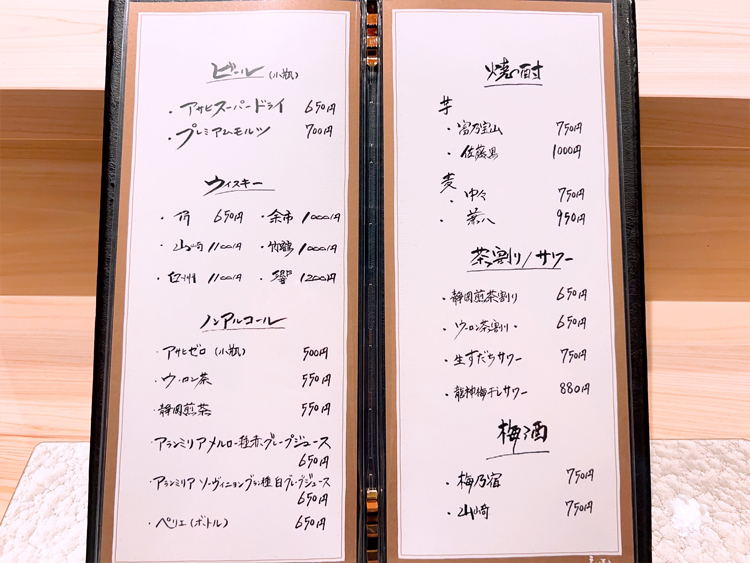 ビール（小瓶）
・アサヒスーパードライ 650円
・プレミアムモルツ 700円
ウィスキー
・知 650円 ・余市 1000円
・山崎 1100円 ・竹鶴 1000円
・白州 1100円 ・響 1200円
ノンアルコール
・アサヒゼロ（小瓶） 500円
・ウーロン茶 550円
・静岡煎茶 550円
・アランミリアメルロー種赤グレープジュース
650円
・アランミリアソーヴィニョンブラン種白グレープジュース
650円
・ペリエ（ボトル） 650円
焼酎
芋
・富乃宝山 750円
・佐藤黒 1000円
麦
・中々 750円
・兼八 950円
茶割り/サワー
・静岡煎茶割り 650円
・ウーロン茶割り・ 650円
・生すだちサワー 750円
・龍神梅干しサワー 880円
梅酒
・梅乃宿 750円
・山崎 750円